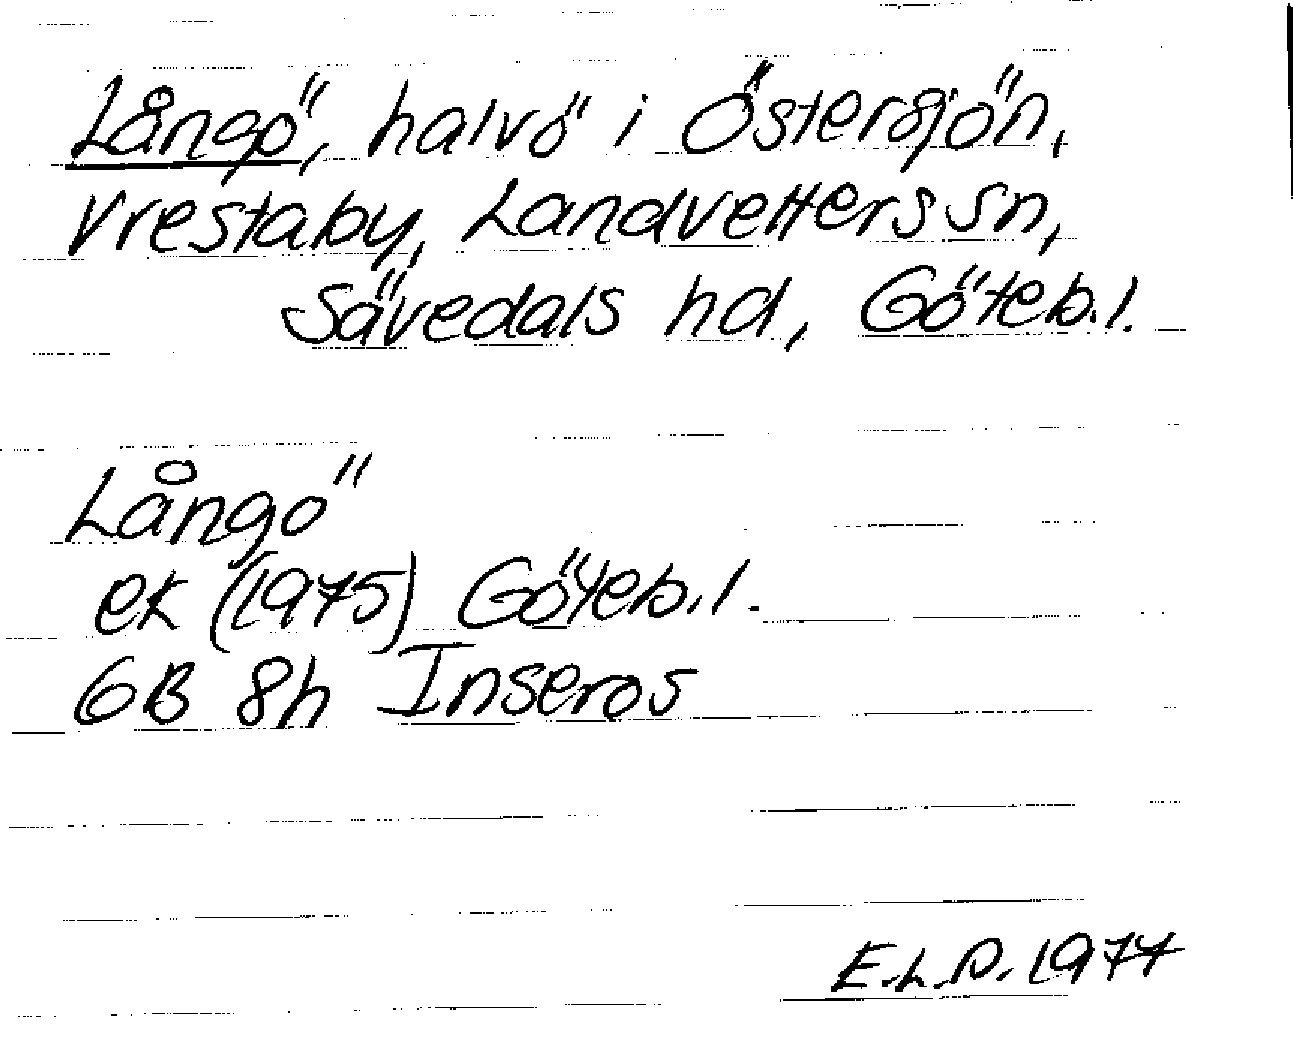 Långö, halvö i Östersjön,
Vrestaby, Landvetters sn,
Sävedals hd, Göteb.l.
Långö
ek (1975) Göteb.l.
6B 8h Inseros
E.L.P. 1977